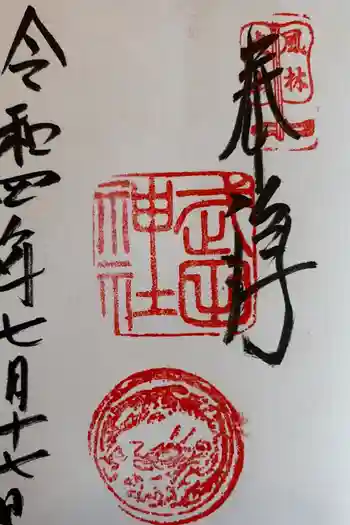 奉拝
風林
武田
神社
令和四年七月十七日